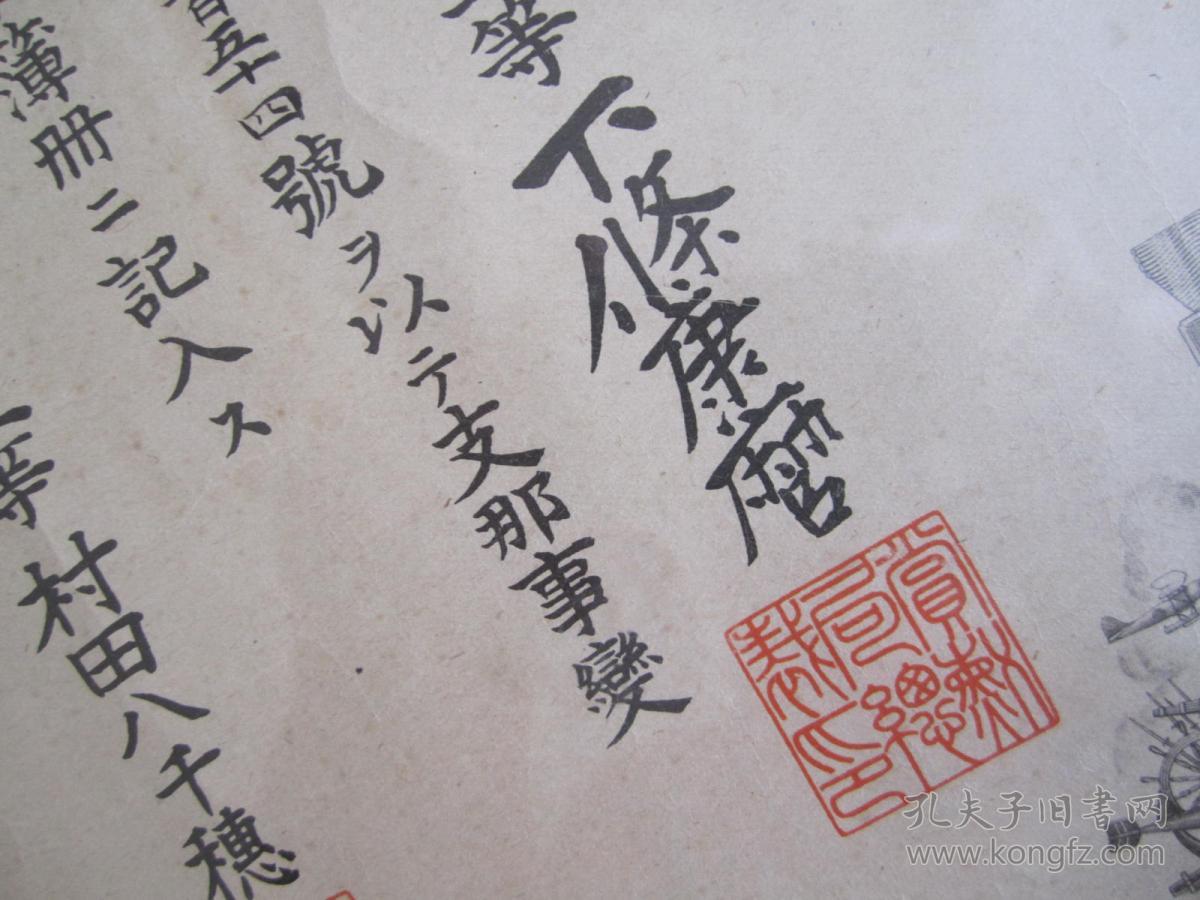 等 下條康麿
賞勲局總裁印
五十四號ヲ以テ支那事變
簿冊ニ記入ス
等 村田八千穂
孔夫子旧書网
www.kongfz.com